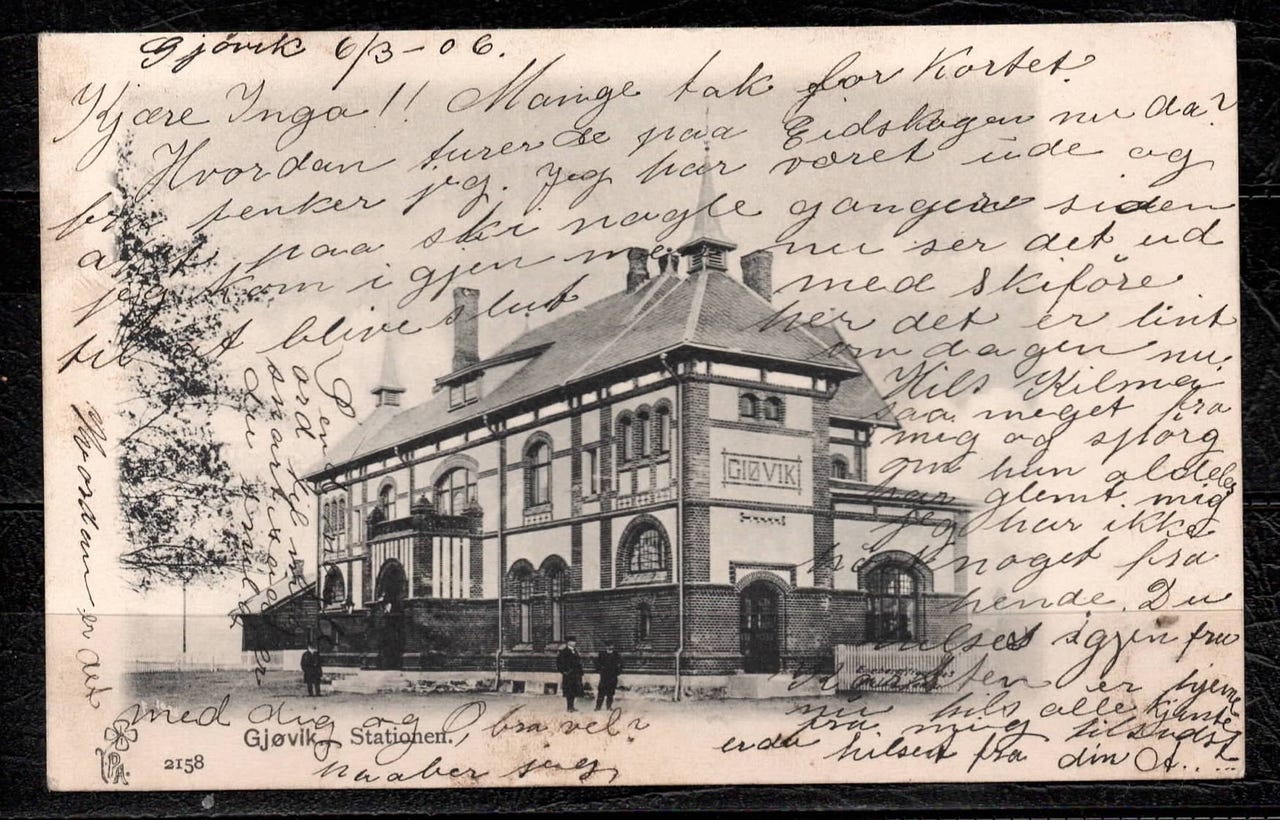 Gjøvik 6/3-06.
Kjære Inga!! Mange tak for Kortet.
Hvordan turer de paa Eidskogen nu da?
bra tenker jeg. Jeg har været ude og
paa ski nogle gangere siden
jeg kom i gjen nu ser det ud
til at blive slut med skiføre
her det er lint
om dagen nu.
Hils
saa meget fra
mig og spørg
om hun
har glemt mig
jeg har ikke
noget fra
hende. Du
hilses igjen fra
er hjemme
nu hils alle kjente
fra mig tilsidst
hilsen fra din A.....
ord
snart
du
Hvordan er det
med dig og O, bra vel?
haaber jeg
GJØVIK
Gjøvik, Stationen.
2158
PA.